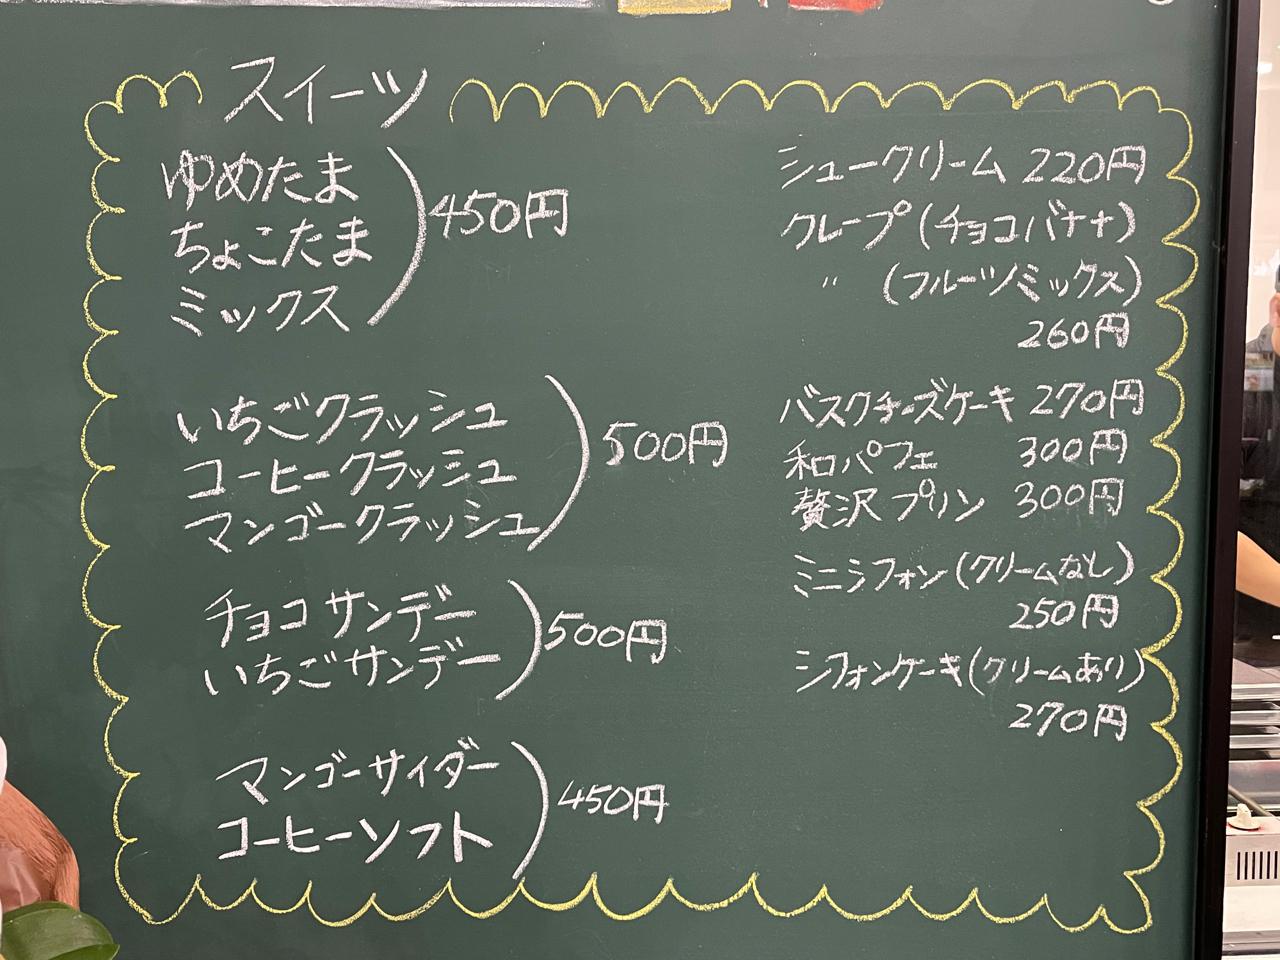 スイーツ
ゆめたま
ちょこたま
ミックス
450円
いちごクラッシュ
コーヒークラッシュ
マンゴークラッシュ
500円
チョコサンデー
いちごサンデー
500円
マンゴーサイダー
コーヒーソフト
450円
シュークリーム 220円
クレープ(チョコバナナ)
〃 (フルーツミックス)
260円
バスクチーズケーキ 270円
和パフェ 300円
贅沢プリン 300円
ミニシフォン(クリームなし)
250円
シフォンケーキ(クリームあり)
270円